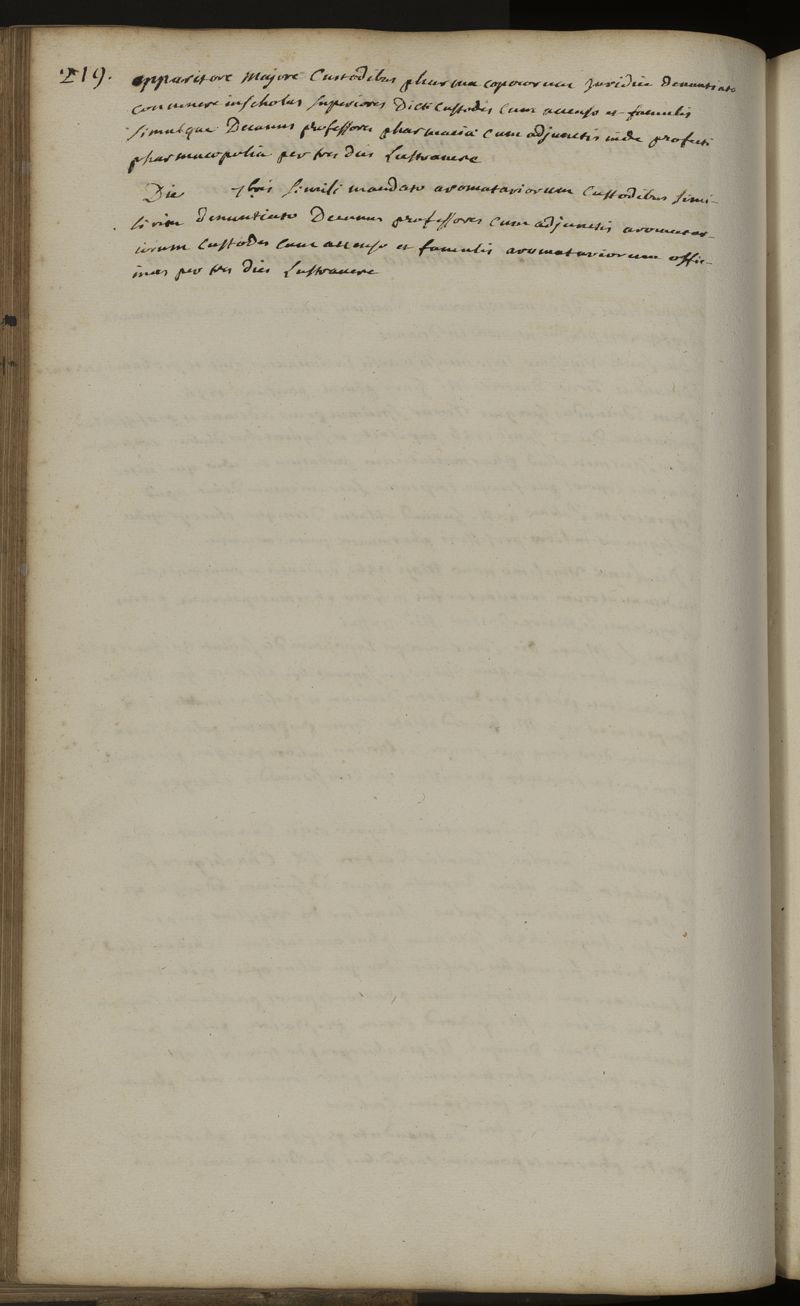 219.
apparitore Majore Custodibus pharmacopoeorum juridice denuntiato
convenere in scholas superiores Dicti Custodes cum accenso et famulis
simulque Decanus professores pharmaciæ cum adjunctis inde profecti
pharmacopolia per tres dies Lustravere
Die 7bris simili mandato aromatariorum Custodibus simi-
li denuntiato Decanus professores cum adjunctis aromatar-
iorum Custodes cum accenso et famulis aromatariorum offic-
inas per tres dies Lustravere